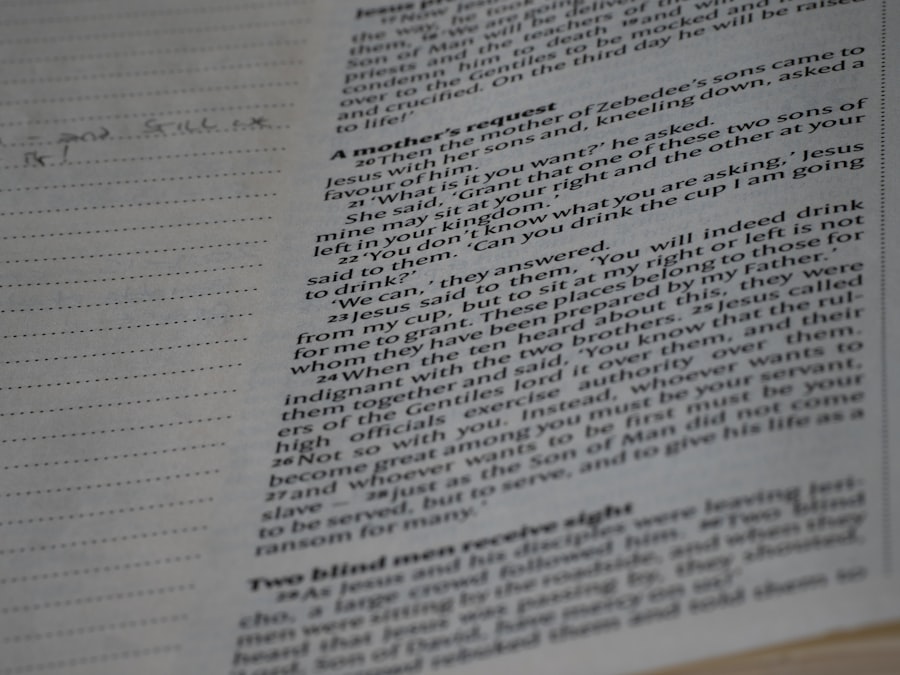 and still
Jesus
Now Jesus
the way, he took
them, 'We are going
Son of Man will be deliver
priests and the teachers of the
condemn him to death 19and will
over to the Gentiles to be mocked and
and crucified. On the third day he will be raised
to life!'
A mother's request
20Then the mother of Zebedee's sons came to
Jesus with her sons and, kneeling down, asked a
favour of him.
21'What is it you want?' he asked.
She said, 'Grant that one of these two sons of
mine may sit at your right and the other at your
left in your kingdom.'
22'You don't know what you are asking,' Jesus
said to them. 'Can you drink the cup I am going
to drink?'
'We can,' they answered.
23Jesus said to them, 'You will indeed drink
from my cup, but to sit at my right or left is not
for me to grant. These places belong to those for
whom they have been prepared by my Father.'
24When the ten heard about this, they were
indignant with the two brothers. 25Jesus called
them together and said, 'You know that the rul-
ers of the Gentiles lord it over them, and their
high officials exercise authority over them.
26Not so with you. Instead, whoever wants to
become great among you must be your servant,
27and whoever wants to be first must be your
slave – 28just as the Son of Man did not come
to be served, but to serve, and to give his life as a
ransom for many.'
Two blind men receive sight
29As Jesus and his disciples were leaving Jeri-
cho, a large crowd followed him. 30Two blind
men were sitting by the roadside, and when they
heard that Jesus was passing by, they shouted,
'Lord, Son of David, have mercy on us!'
rebuked them and told them to